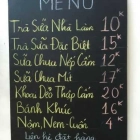 MENU
Trà Sữa Nhà Làm 10K
Trà Sữa Đặc Biệt 15K
Sữa Chua Nếp Cẩm 12K
Sữa Chua Mít 17K
Khoai Dẻo Thập Cẩm 20K
Bánh Khúc 16K
Nậm, Nem Cuốn 4K
Liên hệ đặt hàng